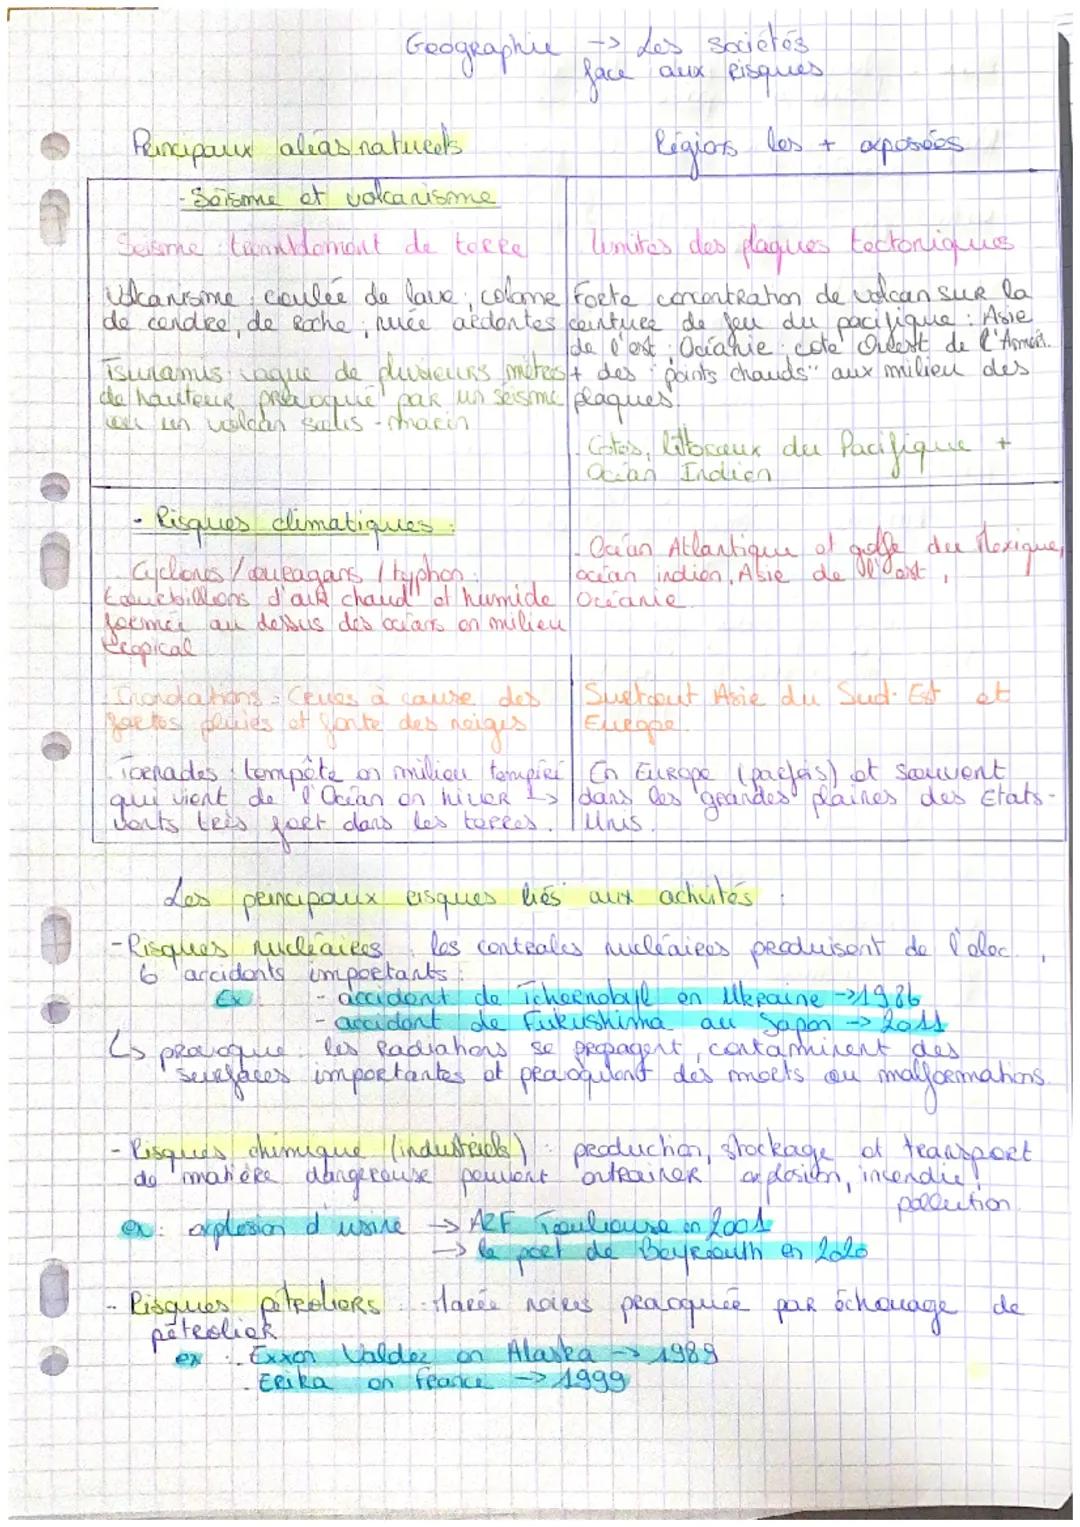 Geographie -> Les sociétés
face aux risques
Principaux aléas naturels
Régions les + exposées
- Séisme et volcanisme
Seisme : tremblement de terre
limites des plaques tectoniques
Volcanisme : coulée de lave ; colone
de cendre, de roche ; nuée ardentes
Forte concentration de volcan sur la
ceinture de feu du pacifique : Asie
de l'est ; Océanie ; cote Ouest de l'Amér.
+ des "points chauds" aux milieu des
plaques.
Tsunamis : vague de plusieurs mètres
de hauteur provoqué par un séisme
ou un volcan sous-marin
- Cotes, littoraux du Pacifique +
Océan Indien
- Risques climatiques :
Cyclones / ouragans / typhon :
tourbillons d'air chaud et humide
formée au dessus des océans en milieu
tropical
- Océan Atlantique et golfe du Mexique,
océan indien, Asie de l'est,
Océanie
Inondations : Crues à cause des
fortes pluies et fonte des neiges
Surtout Asie du Sud-Est et
Europe.
Tornades : tempête en milieu tempéré
qui vient de l'Océan en hiver ->
vents très fort dans les terres.
En Europe (parfois) et souvent
dans les grandes plaines des Etats-
Unis.
Les principaux risques liés aux activités :
- Risques nucléaires : les centrales nucléaires produisent de l'élec.,
6 accidents importants :
Ex : - accident de Tchernobyl en Ukraine -> 1986
- accident de Fukushima au Japon -> 2011
↳ provoque : les radiations se propagent, contaminent des
surfaces importantes et provoquent des morts ou malformations.
- Risques chimique (industriels) : production, stockage et transport
de matière dangereuse peuvent entrainer explosion, incendie !
pollution
ex : explosion d'usine -> AZF Toulouse en 2001
-> le port de Beyrouth en 2020
- Risques pétroliers : Marée noires provoquée par échouage de
pétrolier
ex : - Exxon Valdez en Alaska -> 1989
- Erika en France -> 1999